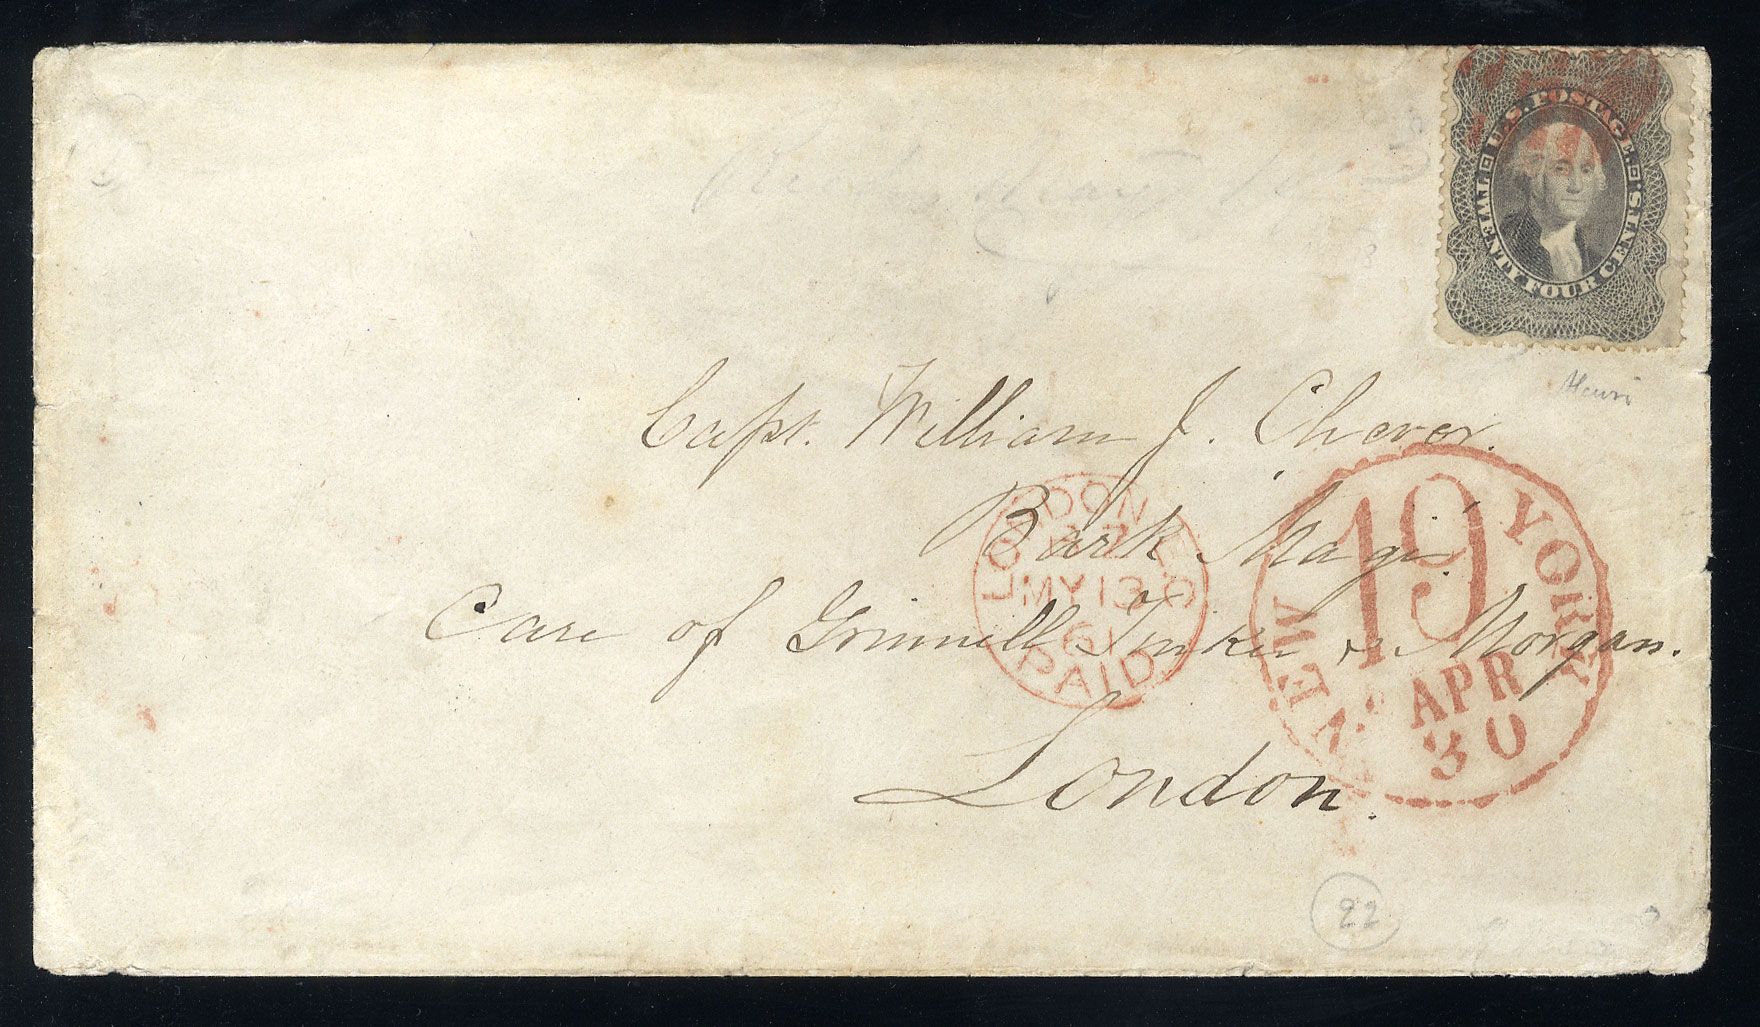 U.S. POSTAGE.
TWENTY-FOUR CENTS.
Capt. William J. Chever.
Bark Magi
Care of Grinnell Tinker & Morgan.
London.
LONDON E C
MY 13
61
PAID
NEW YORK
19
APR
30
22